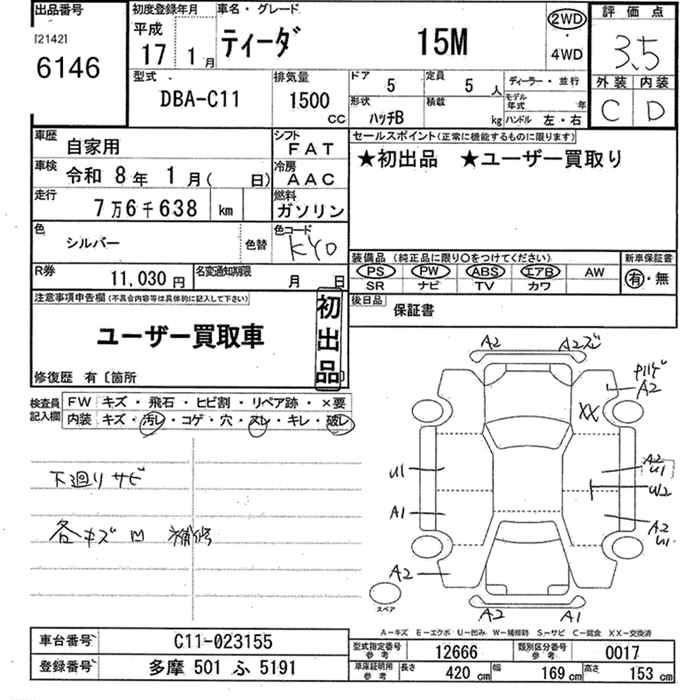 出品番号 初度登録年月 車名・グレード 評価点
[2142] 平成
6146 17年 1月 ティーダ 15M 2WD・4WD 3.5
型式 排気量 ドア 定員 ディーラー・並行 外装 内装
DBA-C11 1500cc 5 5人 モデル年式 年 C D
形状 積載
ハッチB kg ハンドル 左・右
車歴 自家用 シフト FAT セールスポイント(正常に機能するものに限ります)
車検 令和 8年 1月( 日) 冷房 AAC ★初出品 ★ユーザー買取り
走行 7万6千638 km 燃料 ガソリン
色 シルバー 色替 色コード KY0
装備品(純正品に限り○をつけてください) 新車保証書
PS PW ABS エアB AW 有・無
SR ナビ TV カワ
R券 11,030円 名変通知期限 月 日
後日品 保証書
注意事項申告欄(不具合内容等は具体的に記入して下さい)
ユーザー買取車
初出品
修復歴 有〔箇所
検査員記入欄 FW キズ・飛石・ヒビ割・リペア跡・×要
内装 キズ・汚レ・コゲ・穴・スレ・キレ・破レ
下廻りサビ
各キズ凹 補修
A2 A2ズミ
A2
XX
U1 A2 U1
W2
A1 A2 U1
A2
スペア
A2 A1
A-キズ E-エクボ U-凹み W-補修跡 S-サビ C-腐食 XX-交換済
車台番号 C11-023155
登録番号 多摩 501 ふ 5191
型式指定番号 参考 12666 類別区分番号 参考 0017
車庫証明用 参考 長さ 420 cm 幅 169 cm 高さ 153 cm